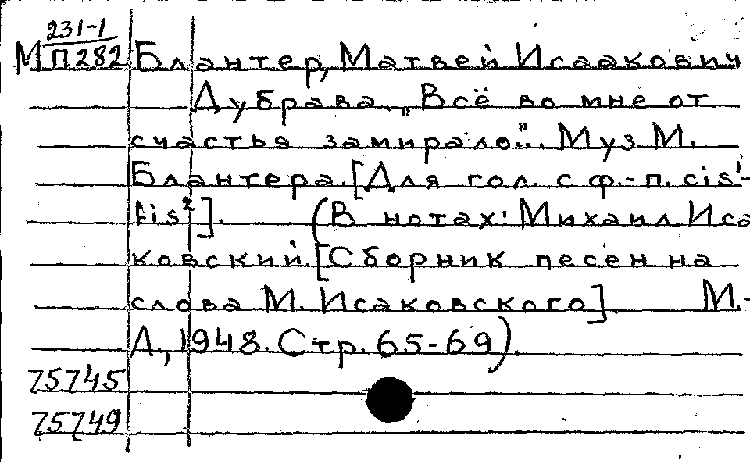 231-1
М П282 Блантер, Матвей Исаакович
Дубрава. „Всё во мне от
счастья замирало". Муз М.
Блантера. [Для гол. с ф.-п. cis¹-
fis²]. (В нотах: Михаил Иса
ковский. [Сборник песен на
слова М. Исаковского] М.-
Л., 1948. Стр. 65-69).
75745
75749